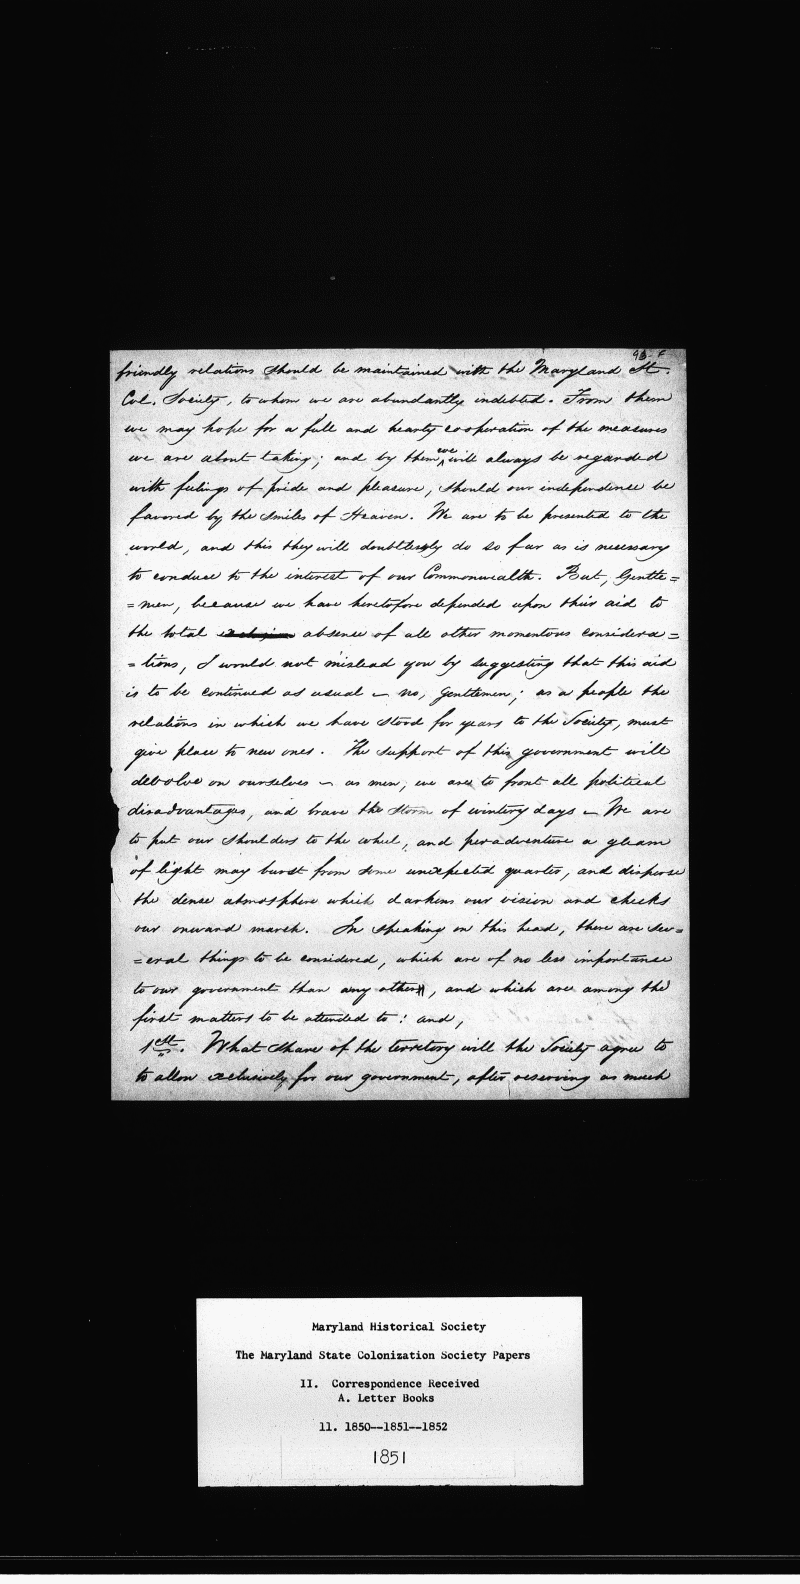 93-F
friendly relations should be maintained with the Maryland St.
Col. Society, to whom we are abundantly indebted. From them
we may hope for a full and hearty cooperation of the measures
we are about taking; and by them we will always be regarded
with feelings of pride and pleasure, should our independence be
favored by the smiles of Heaven. We are to be presented to the
world, and this they will doubtlessly do so far as is necessary
to conduce to the interest of our Commonwealth. But, Gentle=
=men, because we have heretofore depended upon their aid to
the total absence of all other momentous considera=
=tions, I would not mislead you by suggesting that this aid
is to be continued as usual — no, gentlemen; as a people the
relations in which we have stood for years to the Society, must
give place to new ones. The support of this government will
debolve on ourselves — as men, we are to front all political
disadvantages, and brave the storm of wintery days — We are
to put our shoulders to the wheel, and peradventure a gleam
of light may burst from some unexpected quarter, and disperse
the dense atmosphere which darkens our vision and checks
our onward march. In speaking on this head, there are sev=
=eral things to be considered, which are of no less importance
to our government than any other, and which are among the
first matters to be attended to: and,
1st. What share of the territory will the Society agree to
to allow exclusively for our government, after reserving as much
Maryland Historical Society
The Maryland State Colonization Society Papers
II. Correspondence Received
A. Letter Books
11. 1850--1851--1852
1851